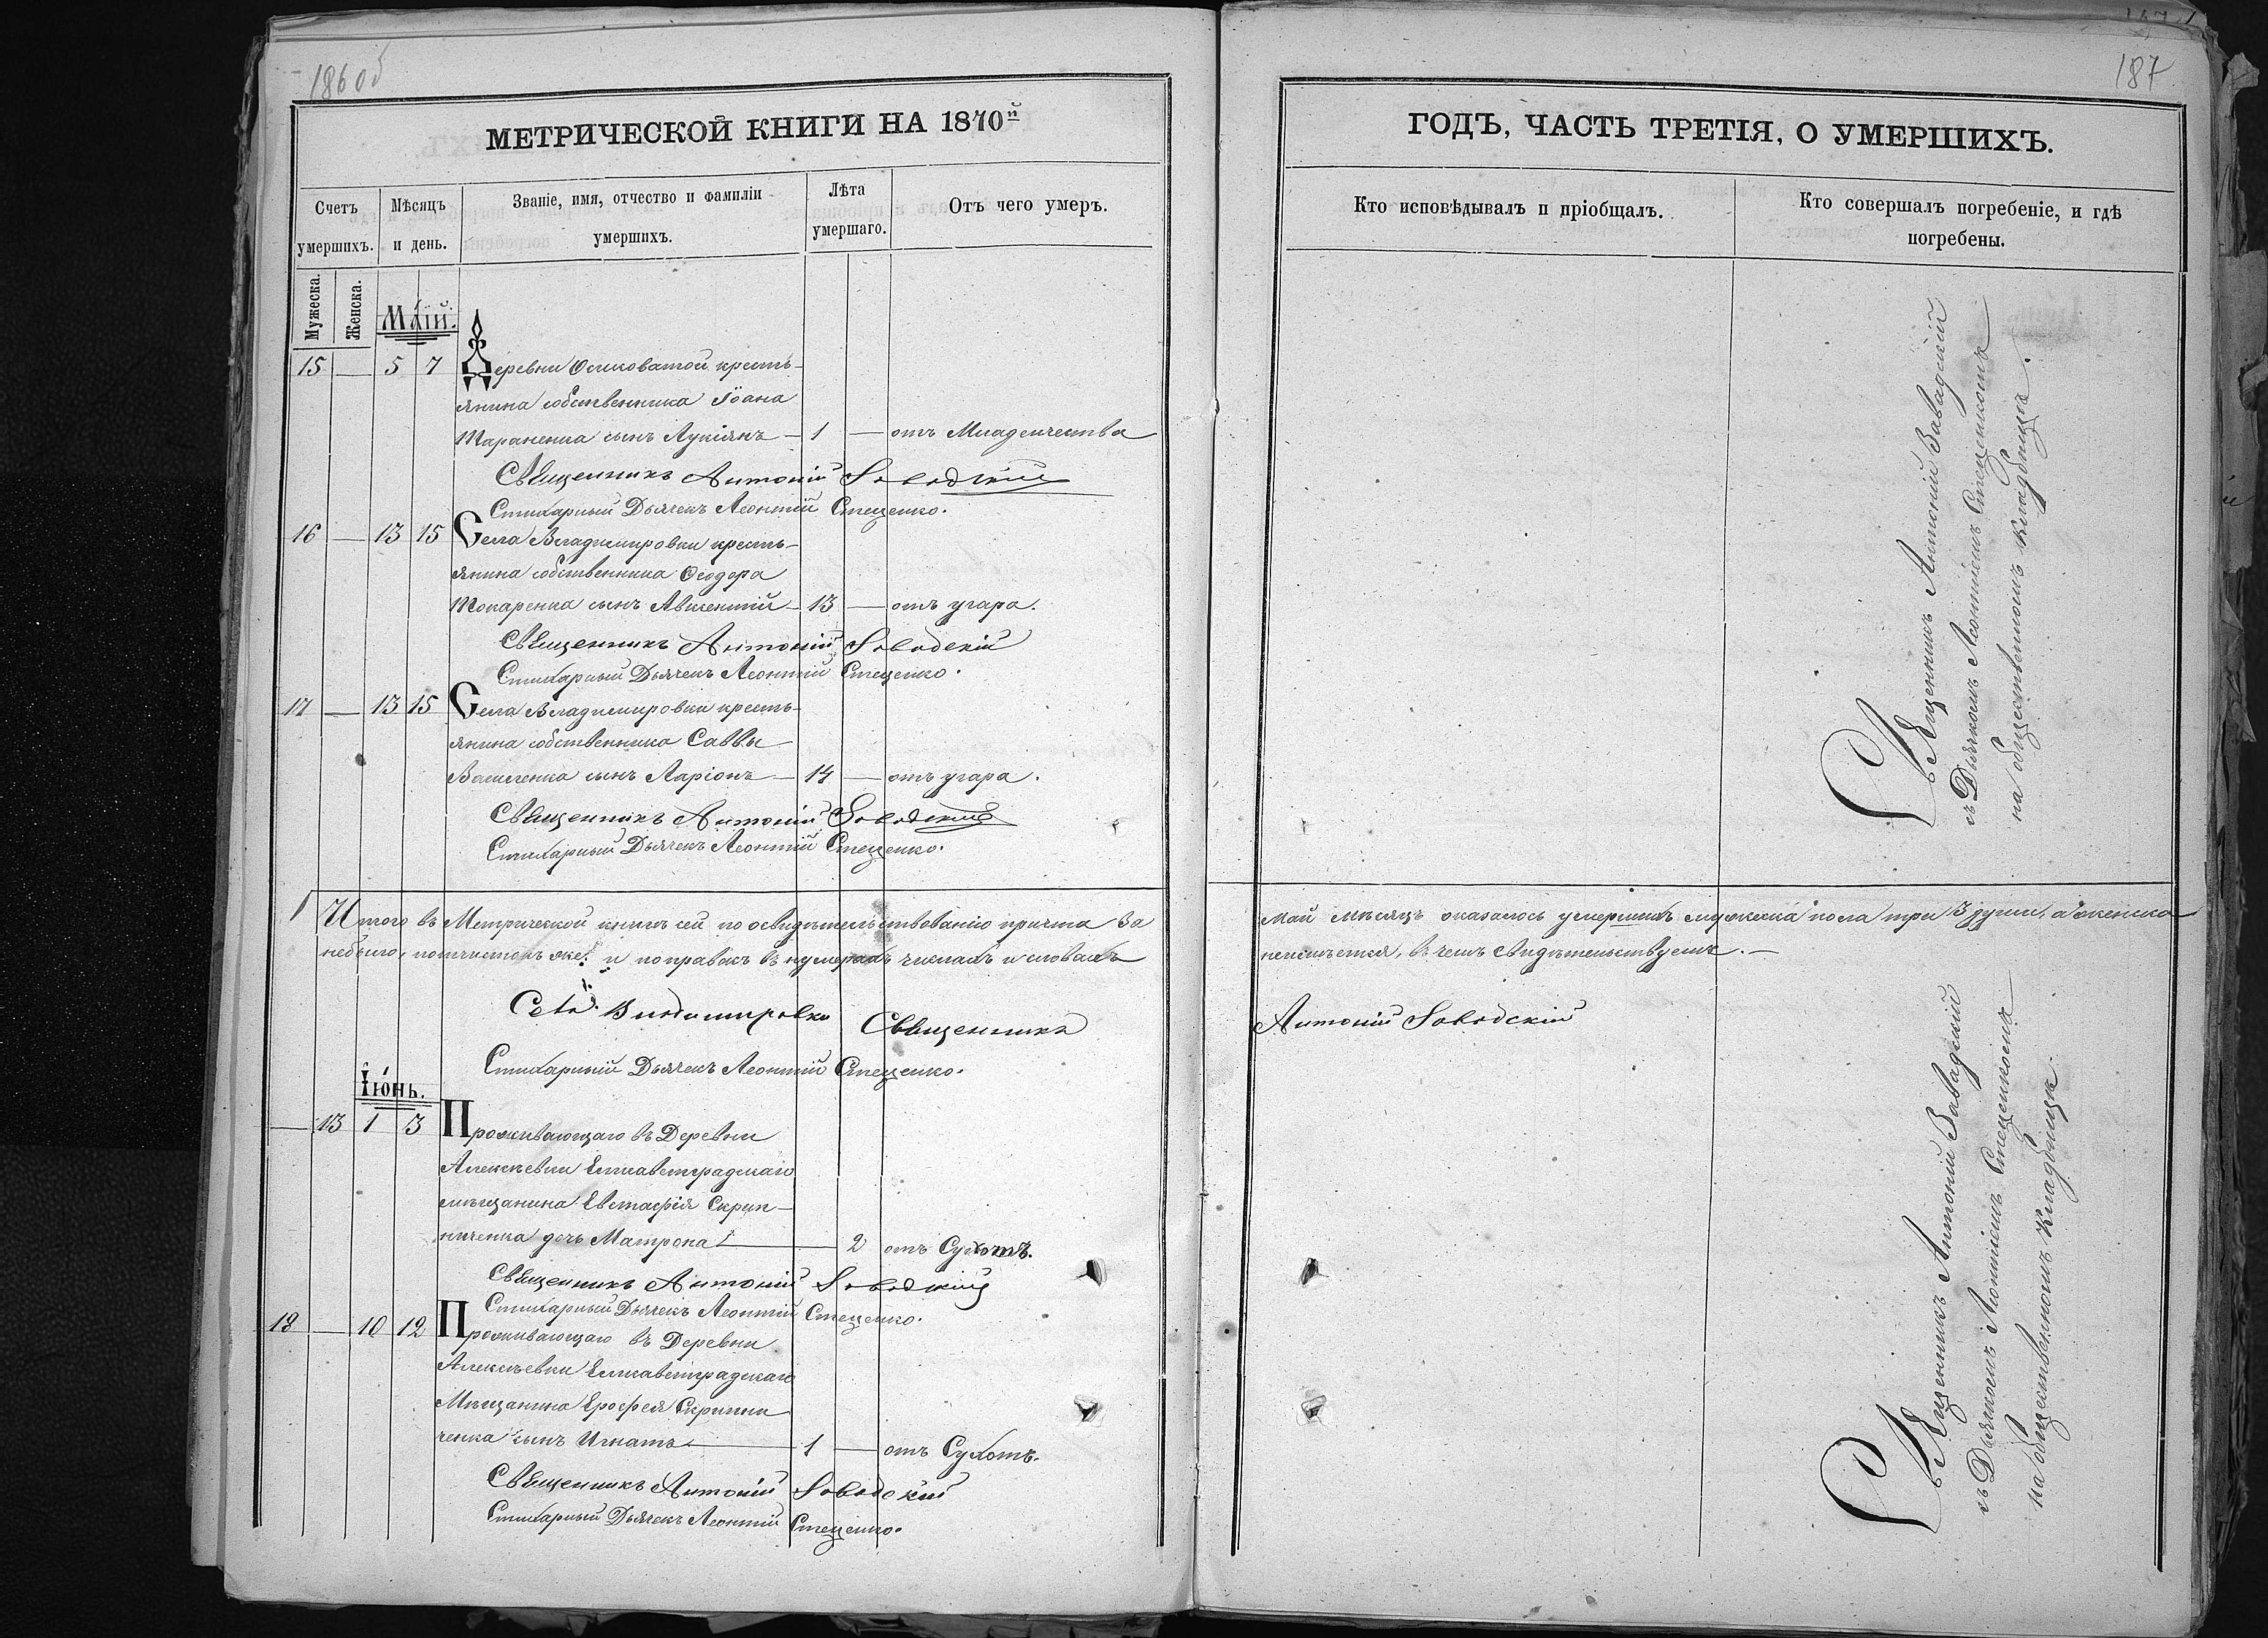 186 об
МЕТРИЧЕСКОЙ КНИГИ НА 1870й
Счетъ умершихъ.
Мѣсяцъ и день.
Званіе, имя, отчество и фамиліи умершихъ.
Лѣта умершаго.
Отъ чего умеръ.
Мужеска.
Женска.
Маій.
15 — 5 7 Деревни Осиковатой кресть-
янина собственника Іоана
Тараненка сынъ Лукіянъ — 1 — отъ Младенчества
Священникъ Антоній Заводскій
Стихарный Дьячекъ Леонтій Стеценко.
16 — 13 15 Села Владимировки кресть-
янина собственника Ѳеодора
Токаренка сынъ Авксентій — 13 — отъ угара.
Священникъ Антоній Заводскій
Стихарный Дьячекъ Леонтій Стеценко.
17 — 13 15 Села Владимировки кресть-
янина собственника Саввы
Василенка сынъ Ларіонъ — 14 — отъ угара.
Священникъ Антоній Заводскій
Стихарный Дьячекъ Леонтій Стеценко.
Итого въ Метрической книгѣ сей по освидѣтельствованію причта за
небыло, почистокъ же и поправокъ въ нумерахъ числахъ и словахъ
Села Владимировки Священникъ
Стихарный Дьячекъ Леонтій Стеценко.
Іюнь.
— 13 1 3 Проживающаго въ Деревни
Алексѣевки Елисаветградскаго
мѣщанина Евстафія Скрип-
ниченка дочь Матрона — 2 отъ Сухотъ.
Священникъ Антоній Заводскій
Стихарный Дьячекъ Леонтій Стеценко.
18 — 10 12 Проживающаго въ Деревни
Алексѣевки Елисаветградскаго
Мѣщанина Ерофея Скрипни
ченка сынъ Игнатъ — 1 — отъ Сухотъ.
Священникъ Антоній Заводскій
Стихарный Дьячекъ Леонтій Стеценко.
187
ГОДЪ, ЧАСТЬ ТРЕТІЯ, О УМЕРШИХЪ.
Кто исповѣдывалъ и пріобщалъ.
Кто совершалъ погребеніе, и гдѣ погребены.
Священникъ Антоній Завадскій
съ Дьячкомъ Леонтіемъ Стеценкомъ
на общественномъ кладбищѣ.
Май мѣсяцъ оказалось умершихъ мужеска пола три 3 души, а женска
неимѣется, въ чемъ свидѣтельствуемъ. —
Антоній Заводскій
Священникъ Антоній Завадскій
съ Дьячкомъ Леонтіемъ Стеценкомъ
на общественномъ Кладбищѣ.